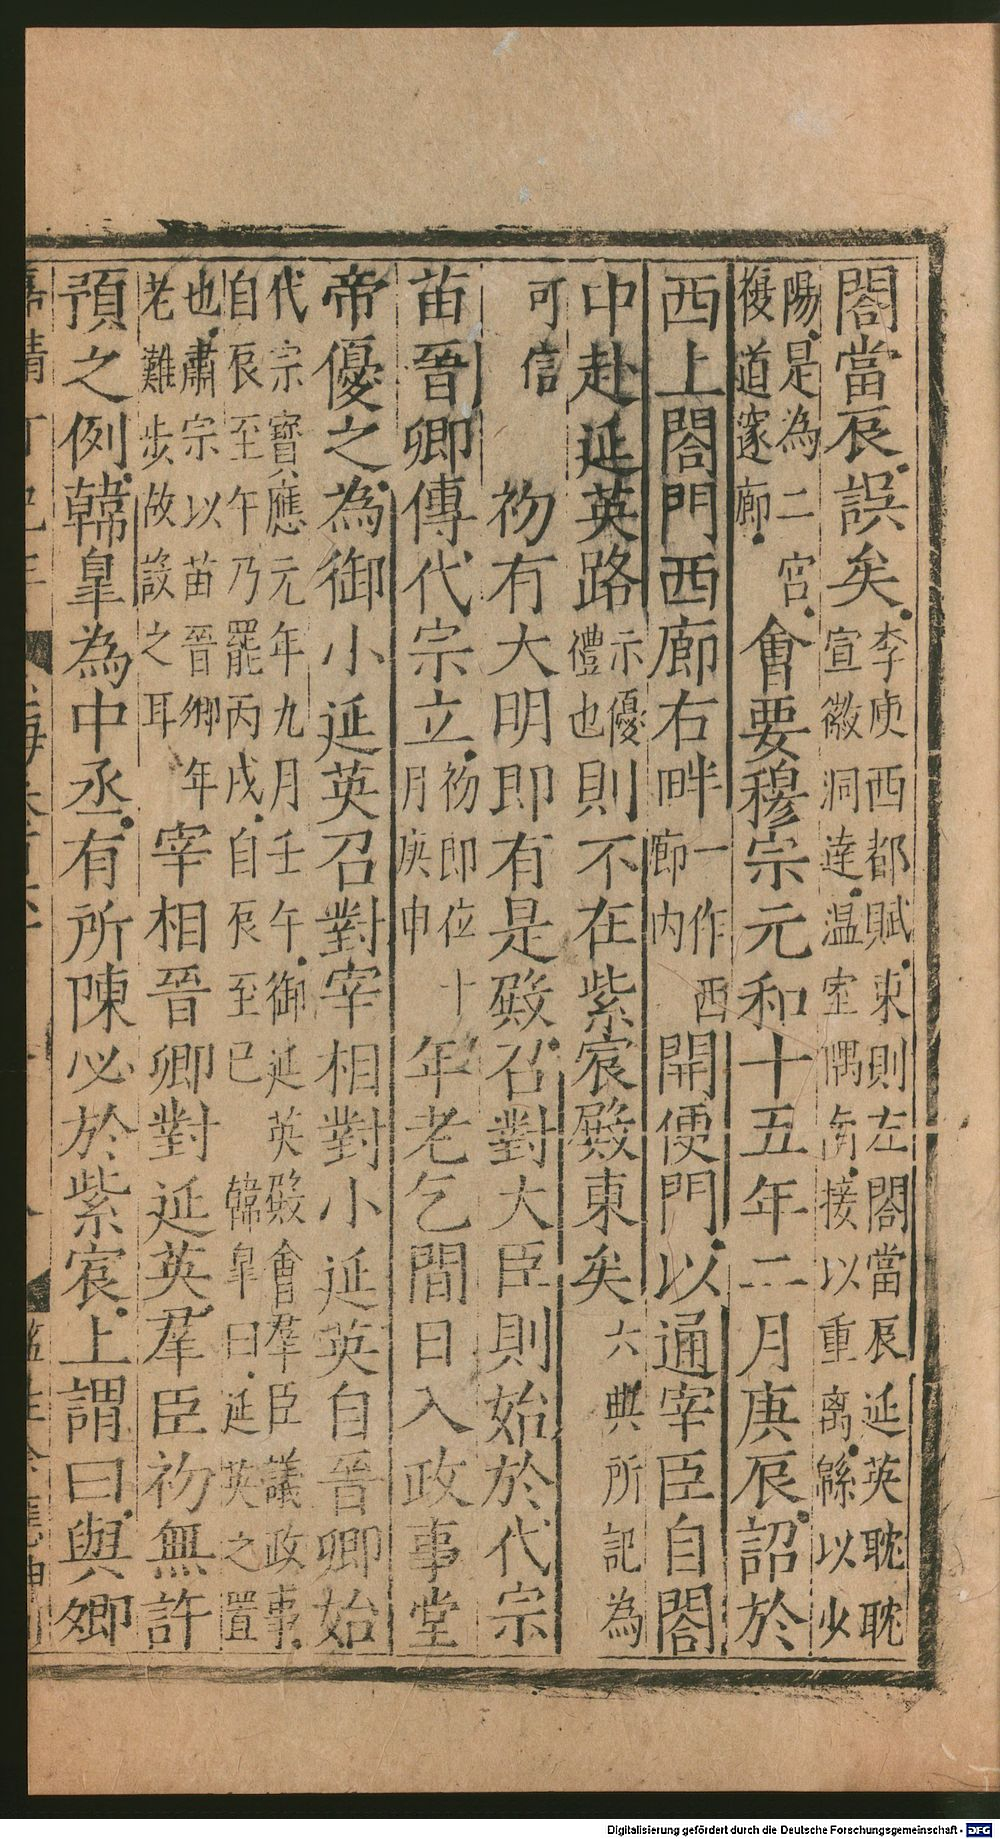 閤當辰誤矣。李庾西都賦。東則左閤當辰延英耽耽
宣徽洞達。温室隅南。接以重离。緜以少
陽。是為二宮。
複道邃廊。會要穆宗元和十五年二月庚辰。詔於
西上閤門西廊右畔一作西
廊内開便門。以通宰臣自閤
中赴延英路示優
禮也則不在紫宸殿東矣六典所記為
可信
初有大明即有是殿。召對大臣則始於代宗
苗晉卿傳代宗立。初即位十
月庚申年老乞間日入政事堂
帝優之。為御小延英召對宰相對小延英自晉卿始
代宗寶應元年九月壬午。御延英殿會羣臣議政事。
自辰至午乃罷丙戌。自辰至巳韓皐曰。延英之置
也。肅宗以苗晉卿年
老難步故設之耳宰相晉卿對延英。羣臣初無許
預之例。韓皐為中丞。有所陳必於紫宸。上謂曰。與卿
嘉靖丁巳年
Digitalisierung gefördert durch die Deutsche Forschungsgemeinschaft - DFG